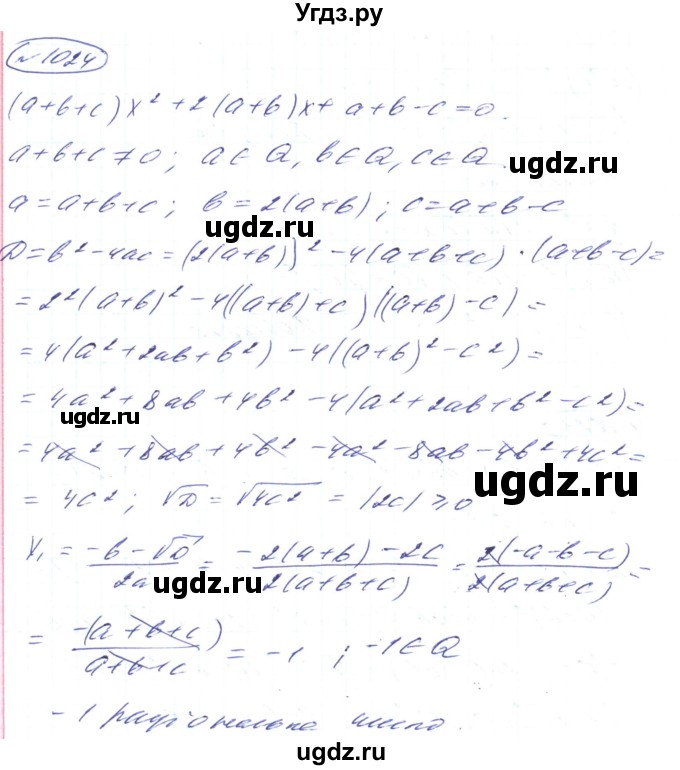 Угдз.ру
№1024
(a+b+c)x²+2(a+b)x+a+b-c=0.
a+b+c≠0; a∈Q, b∈Q, c∈Q.
ugdz.ru
a=a+b+c; b=2(a+b); c=a+b-c
ugdz.ru
D=b²-4ac=(2(a+b))²-4(a+b+c)·(a+b-c)=
=2²(a+b)²-4((a+b)+c)((a+b)-c)=
=4(a²+2ab+b²)-4((a+b)²-c²)=
=4a²+8ab+4b²-4(a²+2ab+b²-c²)=
ugdz.ru
=4a²+8ab+4b²-4a²-8ab-4b²+4c²=
ugdz.ru
=4c²; √D=√4c²=|2c|≥0
x₁=(-b-√D)/2a=(-2(a+b)-2c)/(2(a+b+c))=2(-a-b-c)/(2(a+b+c))=
ugdz.ru
ugdz.ru
=-(a+b+c)/(a+b+c)=-1; -1∈Q
ugdz.ru
-1 раціональне число.
ugdz.ru